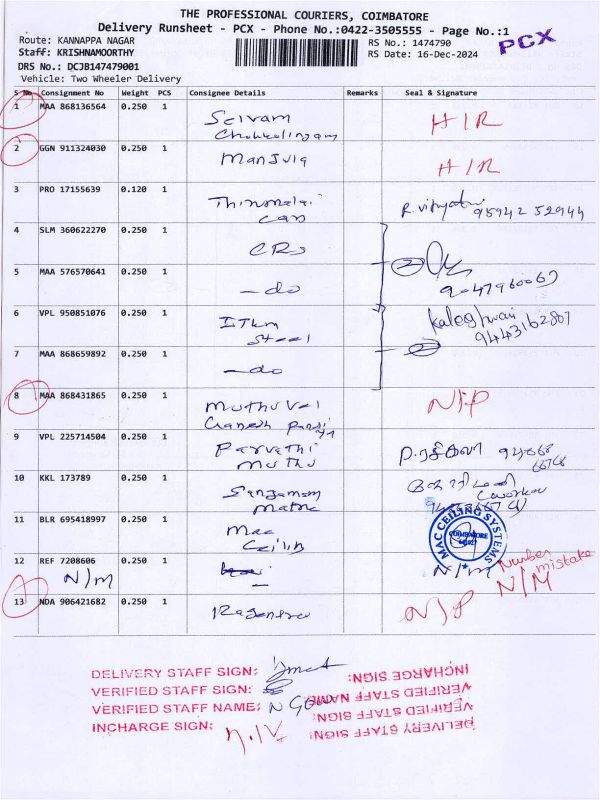 THE PROFESSIONAL COURIERS, COIMBATORE
Delivery Runsheet - PCX - Phone No.:0422-3505555 - Page No.:1
PCX
Route: KANNAPPA NAGAR
RS No.: 1474790
Staff: KRISHNAMOORTHY
RS Date: 16-Dec-2024
DRS No.: DCJB147479001
Vehicle: Two Wheeler Delivery
S No Consignment No Weight PCS Consignee Details Remarks Seal & Signature
1 MAA 868136564 0.250 1 Selvam
Chokkalingam
H/R
2 GGN 911324030 0.250 1 Manjula
H/R
3 PRO 17155639 0.120 1 Thirumalai
can
95942 52944
4 SLM 360622270 0.250 1 CRs
5 MAA 576570641 0.250 1 -do
2
6 VPL 950851076 0.250 1
Steel
9443162807
7 MAA 868659892 0.250 1 -do
2
8 MAA 868431865 0.250 1 Muthuvel
Ganesh
N/P
9 VPL 225714504 0.250 1 Parvathi
Muthu
10 KKL 173789 0.250 1
11 BLR 695418997 0.250 1 Mac
Ceilin
MAC CEILING SYSTEMS
COIMBATORE
12 REF 7208606 0.250 1
N/M
N/M
Number
mistake
N/M
13 NDA 906421682 0.250 1 Rajendra
N/P
DELIVERY STAFF SIGN:
VERIFIED STAFF SIGN:
VERIFIED STAFF NAME:
INCHARGE SIGN:
INCHARGE SIGN:
VERIFIED STAFF NAME
VERIFIED STAFF SIGN:
DELIVERY STAFF SIGN: